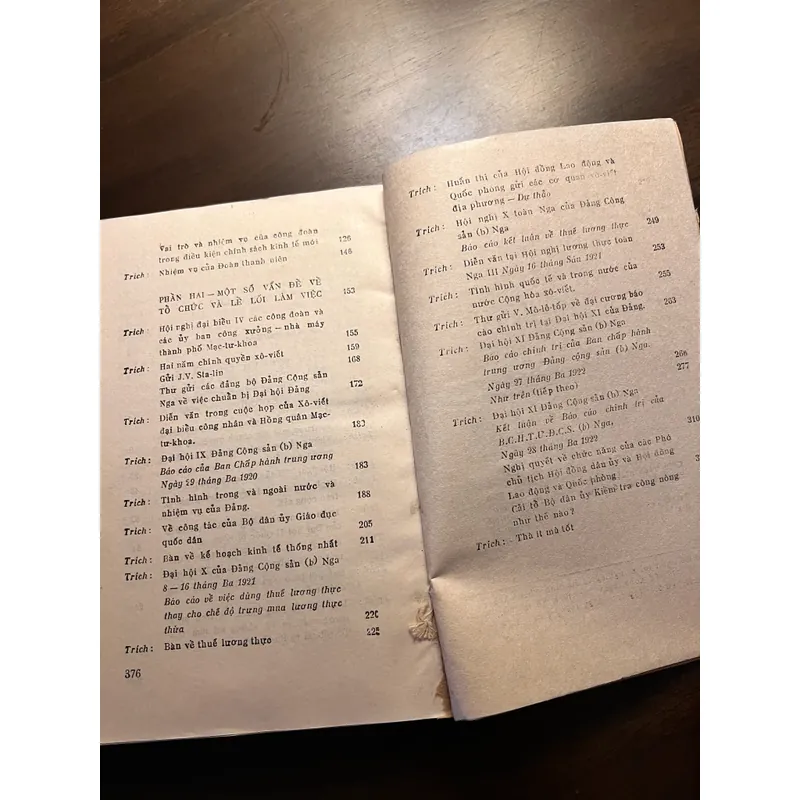 Vai trò và nhiệm vụ của công đoàn
trong điều kiện chính sách kinh tế mới 126
Trích: Nhiệm vụ của Đoàn thanh niên 146
PHẦN HAI — MỘT SỐ VẤN ĐỀ VỀ
TỔ CHỨC VÀ LỀ LỐI LÀM VIỆC 153
Trích: Hội nghị đại biểu IV các công đoàn và
các ủy ban công xưởng — nhà máy
thành phố Mạc-tư-khoa 155
Trích: Hai năm chính quyền xô-viết 159
Gửi J.V. Sta-lin 168
Thư gửi các đảng bộ Đảng Cộng sản
Nga về việc chuẩn bị Đại hội Đảng 172
Trích: Diễn văn trong cuộc họp của Xô-viết
đại biểu công nhân và Hồng quân Mạc-
tư-khoa. 180
Trích: Đại hội IX Đảng Cộng sản (b) Nga
Báo cáo của Ban Chấp hành trung ương
Ngày 29 tháng Ba 1920 183
Trích: Tình hình trong và ngoài nước và
nhiệm vụ của Đảng. 188
Trích: Về công tác của Bộ dân ủy Giáo dục
quốc dân 205
Trích: Bàn về kế hoạch kinh tế thống nhất 211
Trích: Đại hội X của Đảng Cộng sản (b) Nga
8 — 16 tháng Ba 1921
Báo cáo về việc dùng thuế lương thực
thay cho chế độ trưng mua lương thực
thừa 220
Trích: Bàn về thuế lương thực 225
376
Trích: Huấn thị của Hội đồng Lao động và
Quốc phòng gửi các cơ quan xô-viết
địa phương — Dự thảo
Trích: Hội nghị X toàn Nga của Đảng Cộng
sản (b) Nga
Báo cáo kết luận về thuế lương thực 249
Trích: Diễn văn tại Hội nghị lương thực toàn
Nga III Ngày 16 tháng Sáu 1921 253
Trích: Tình hình quốc tế và trong nước của
nước Cộng hòa xô-viết. 255
Trích: Thư gửi V. Mô-lô-tốp về đại cương báo
cáo chính trị tại Đại hội XI của Đảng. 263
Trích: Đại hội XI Đảng Cộng sản (b) Nga
Báo cáo chính trị của Ban chấp hành
trung ương Đảng cộng sản (b) Nga.
Ngày 27 tháng Ba 1922 266
Như trên (tiếp theo) 277
Trích: Đại hội XI Đảng Cộng sản (b) Nga
Kết luận về Báo cáo chính trị của
B.C.H.T.Ư.Đ.C.S. (b) Nga,
Ngày 28 tháng Ba 1922 310
Nghị quyết về chức năng của các Phó
chủ tịch Hội đồng dân ủy và Hội đồng
Lao động và Quốc phòng
Cải tổ Bộ dân ủy Kiểm tra công nông
như thế nào?
Trích: Thà ít mà tốt